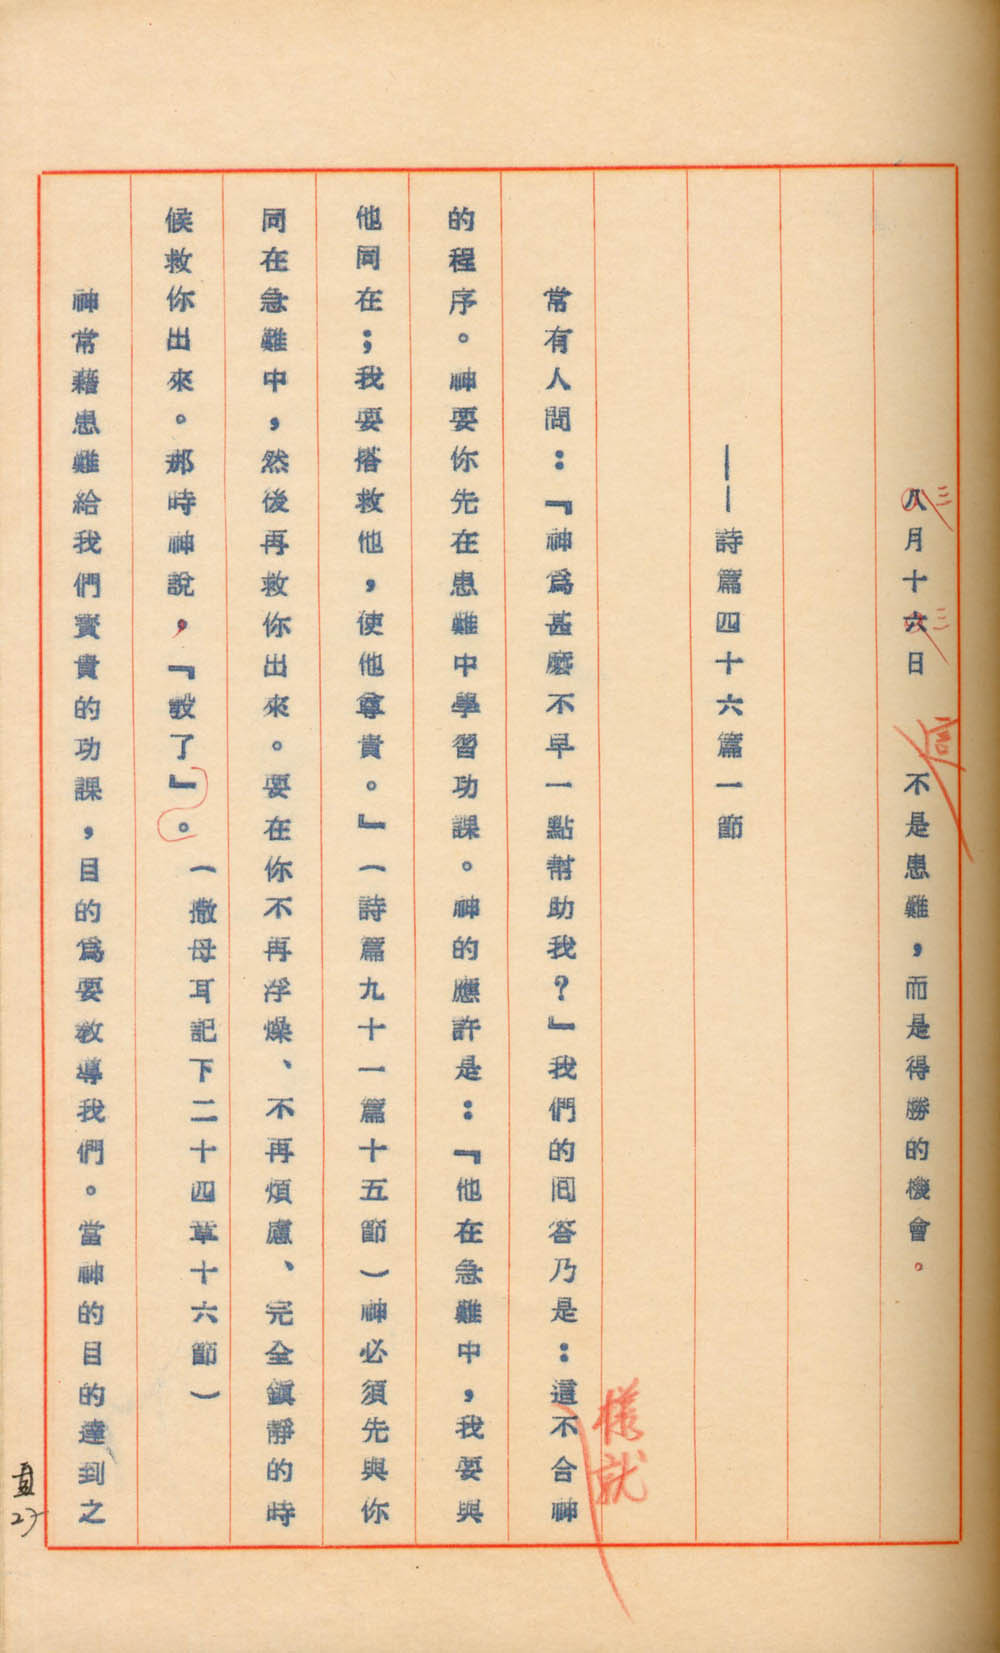 八月十六日　不是患難，而是得勝的機會。
三
三
——詩篇四十六篇一節
常有人問：『神爲甚麼不早一點幫助我？』我們的回答乃是：這不合神
樣就
的程序。神要你先在患難中學習功課。神的應許是：『他在急難中，我要與
他同在；我要搭救他，使他尊貴。』（詩篇九十一篇十五節）神必須先與你
同在急難中，然後再救你出來。要在你不再浮燥、不再煩慮、完全鎮靜的時
候救你出來。那時神說，『彀了』。（撒母耳記下二十四章十六節）
神常藉患難給我們寳貴的功課，目的爲要教導我們。當神的目的達到之